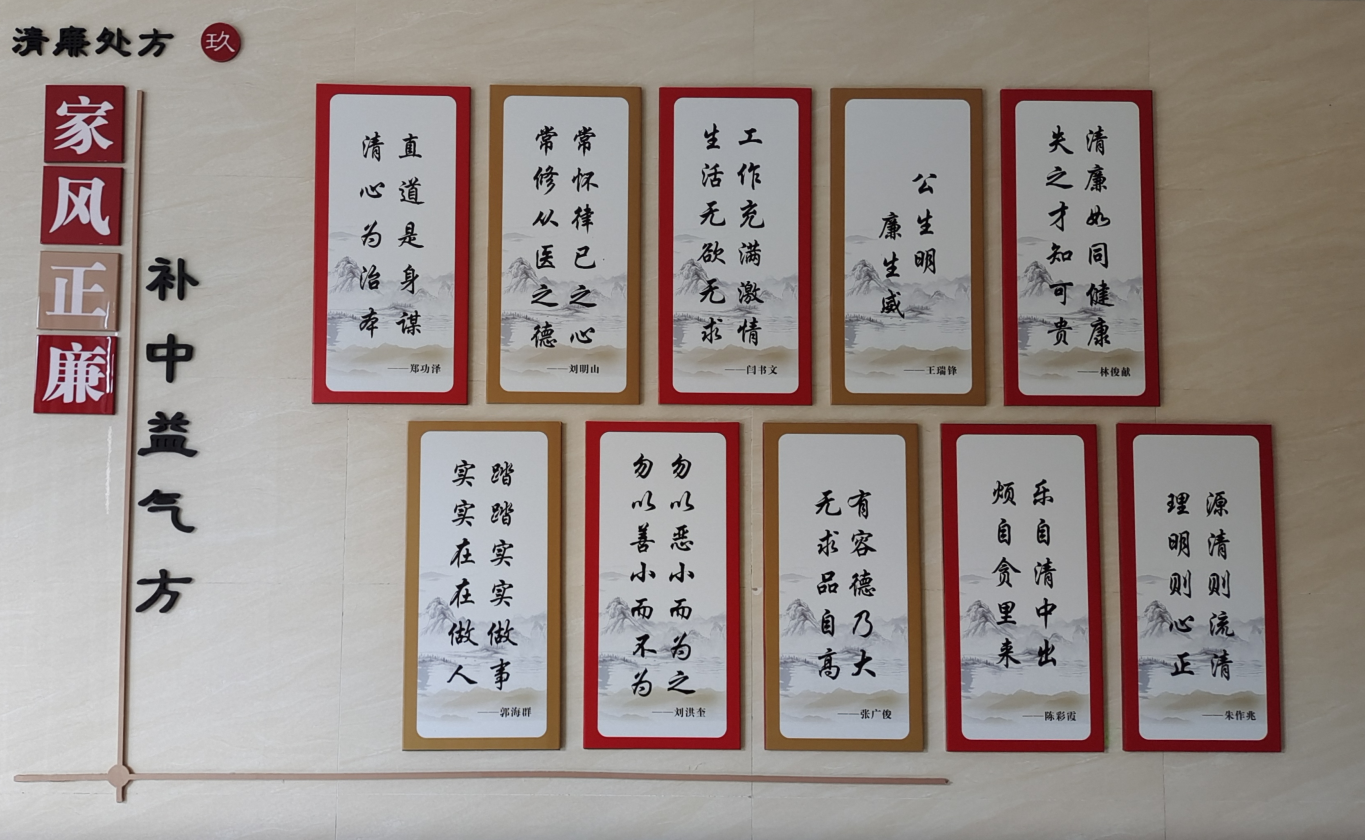 清廉处方 玖
家风正廉
补中益气方
直道是身谋
清心为治本
——郑功泽
常怀律己之心
常修从医之德
——刘明山
工作充满激情
生活无欲无求
——闫书文
公生明
廉生威
——王瑞锋
清廉如同健康
失之才知可贵
——林俊献
踏踏实实做事
实实在在做人
——郭海群
勿以恶小而为之
勿以善小而不为
——刘洪奎
有容德乃大
无求品自高
——张广俊
乐自清中出
烦自贪里来
——陈彩霞
源清则流清
理明则心正
——朱作兆